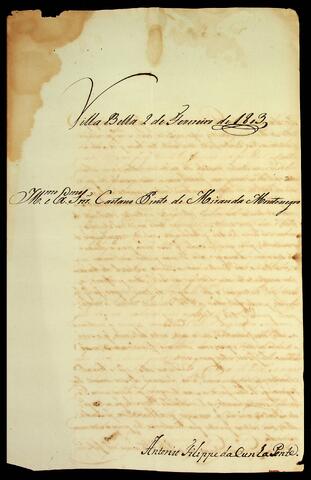 Villa Bella 2 de Fevereiro de 1803,
Ill.mo e Ex.mo Snr. Caetano Pinto de Miranda Montenegro
Antonio Filippe da Cunha Ponte.